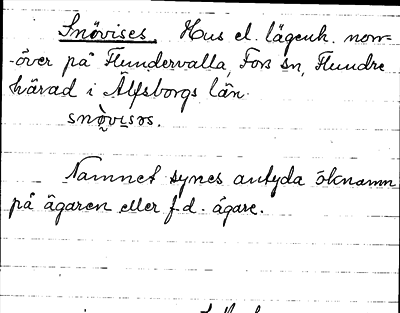 Snövises. Hus el. lägenh. norr-
-över på Flundervalla, Fors sn, Flundre
härad i Älfsborgs län.
snö̀visəs.
Namnet synes antyda öknamn
på ägaren eller f.d. ägare.